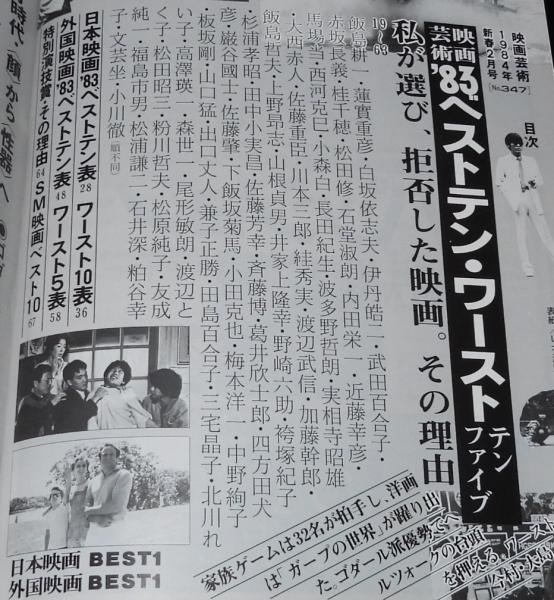 映画芸術
1984年
新春2月号
[No.347]
目次
映画芸術'83ベストテン・ワーストテンファイブ
私が選び、拒否した映画。その理由
19〜63
飯島耕一・蓮實重彦・白坂依志夫・伊丹皓二・武田百合子・
赤坂長義・桂千穂・松田修・石堂淑朗・内田栄一・近藤幸彦・
馬場当・西河克己・小森白・長田紀生・波多野哲朗・実相寺昭雄
・大西赤人・佐藤重臣・川本三郎・絓秀実・渡辺武信・加藤幹郎・
飯島哲夫・上野昂志・山根貞男・井家上隆幸・野崎六助・袴塚紀子
・杉浦孝昭・田中小実昌・佐藤芳幸・斉藤博・葛井欣士郎・四方田犬
彦・巌谷國士・佐藤肇・下飯坂菊馬・小田克也・梅本洋一・中野絢子
・板坂剛・山口猛・出口丈人・兼子正勝・田島百合子・三宅晶子・北川れ
い子・高澤瑛一・森世一・尾形敏朗・渡辺と
く子・松田昭三・粉川哲夫・松原純子・友成
純一・福島市男・松浦謙二・石井深・粕谷幸
子・文芸坐・小川徹(順不同)
日本映画'83ベストテン表28 ワースト10表36
外国映画'83ベストテン表48 ワースト5表58
特別演技賞・その理由64 SM映画ベスト10 67
時代・〈顔〉から〈性器〉へ
日本映画 BEST1
外国映画 BEST1
家族ゲームは32名が拍手し、洋画
は「ガープの世界」が躍り出
た。ゴダール派優勢でヘ
ルツォークの台頭
を押える。ワースト